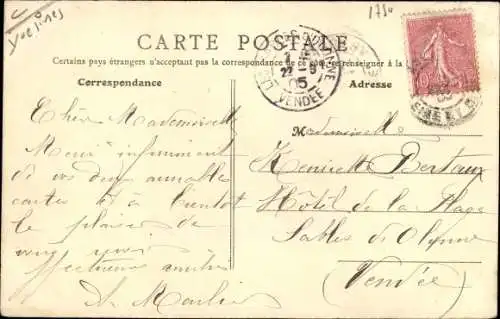 1750
Yvelines
CARTE POSTALE
Certains pays étrangers n'acceptant pas la correspondance de ce côté, se renseigner à la
Correspondance
Adresse
VENDÉE
05
10
Chère Mademoiselle
Merci infiniment
de vos deux aimables
cartes et à bientôt
le plaisir de
vous
affectueuse amitié
Mademoiselle
Bertaux
Hôtel de la Plage
Sables d'Olonne
(Vendée)